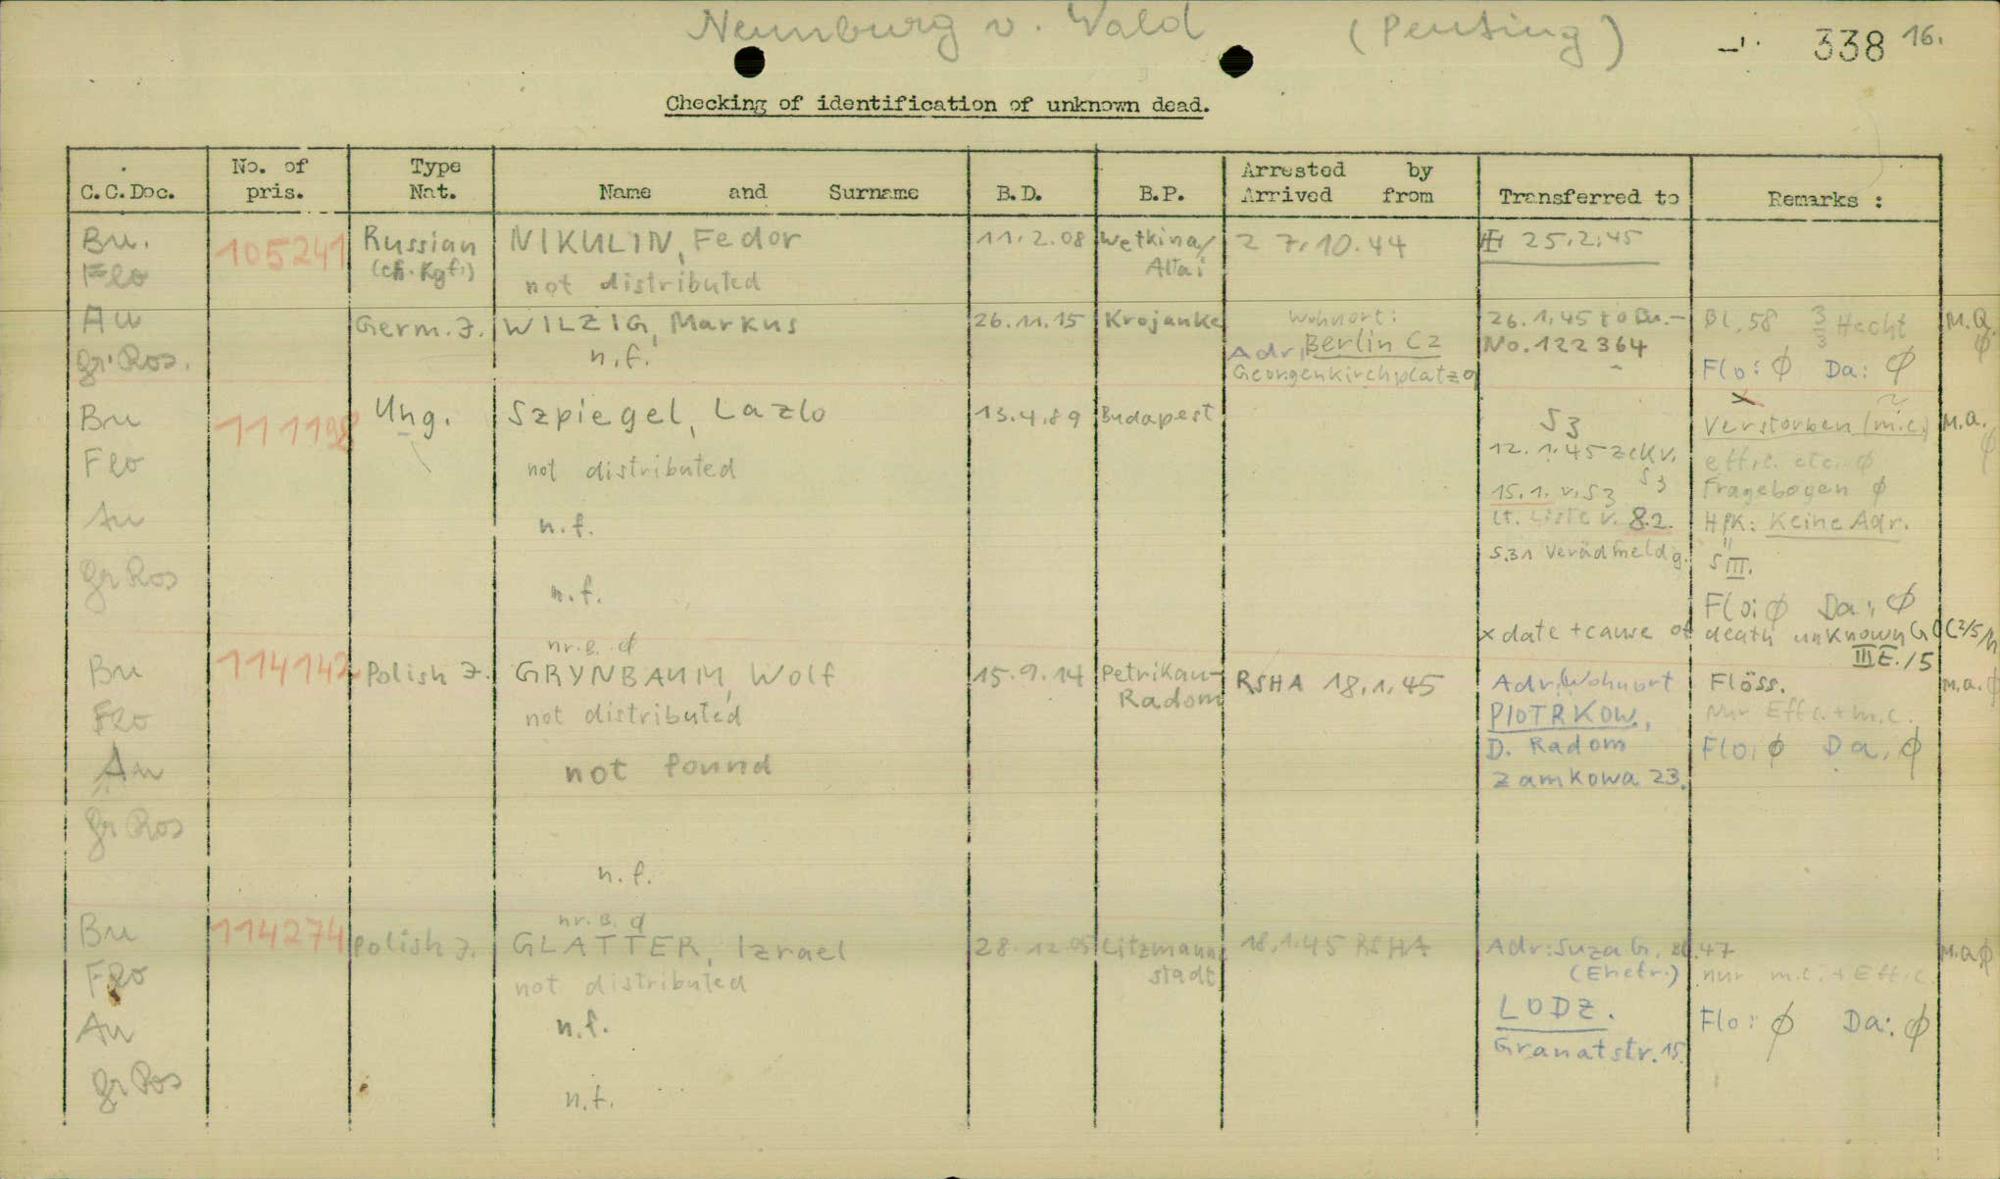 Neunburg v. Wald (Penting) 338 16.
Checking of identification of unknown dead.
C.C.Doc. No. of pris. Type Nat. Name and Surname B.D. B.P. Arrested by Arrived from Transferred to Remarks :
Bu. 105241 Russian NIKULIN, Fedor 11.2.08 Wetkina/ 27.10.44 25.2.45
Flo (ch. Kgf.) not distributed Altai
Au Germ. J. WILZIG, Markus 26.11.15 Krojanke Wohnort: 26.1.45 to Bu.- Bl. 58 Hecht M.a.
gr. Ros. n.f. Adr. Berlin C2 No. 122364 ø
Georgenkirchplatz 9 Flo: ø Da: ø
Bu 111198 Ung. Szpiegel, Lazlo 13.4.89 Budapest S3 x Verstorben (m.c.) M.a. ø
Flo not distributed 12.1.45 z. Kv. S3 eff.c. etc. ø
15.1. v. S3 Fragebogen ø
Au n.f. lt. Liste v. 8.2. HPK: Keine Adr.
S.31 Verädmeldg. S III.
gr Ros n.f. Flo: ø Da: ø
x date + cause of death unknown
III E./5
nr. B. d
Bu 114142 Polish J. GRYNBAUM, Wolf 15.9.14 Petrikau- RSHA 18.1.45 Adr. (Wohnort Flöss. M.a. ø
Flo not distributed Radom PIOTRKOW, nur Eff.c. + m.c.
Au not found D. Radom Flo. ø Da. ø
Zamkowa 23.
gr Ros
n.f.
nr. B. d
Bu 114274 Polish J. GLATTER, Izrael 28.12.05 Litzmann- 18.1.45 RSHA Adr: Suza G. 47 M.a. ø
Flo not distributed stadt (Ehefr.) nur m.c. + Eff.c.
Au n.f. LODZ. Flo: ø Da: ø
Granatstr. 15.
gr Ros n.f.